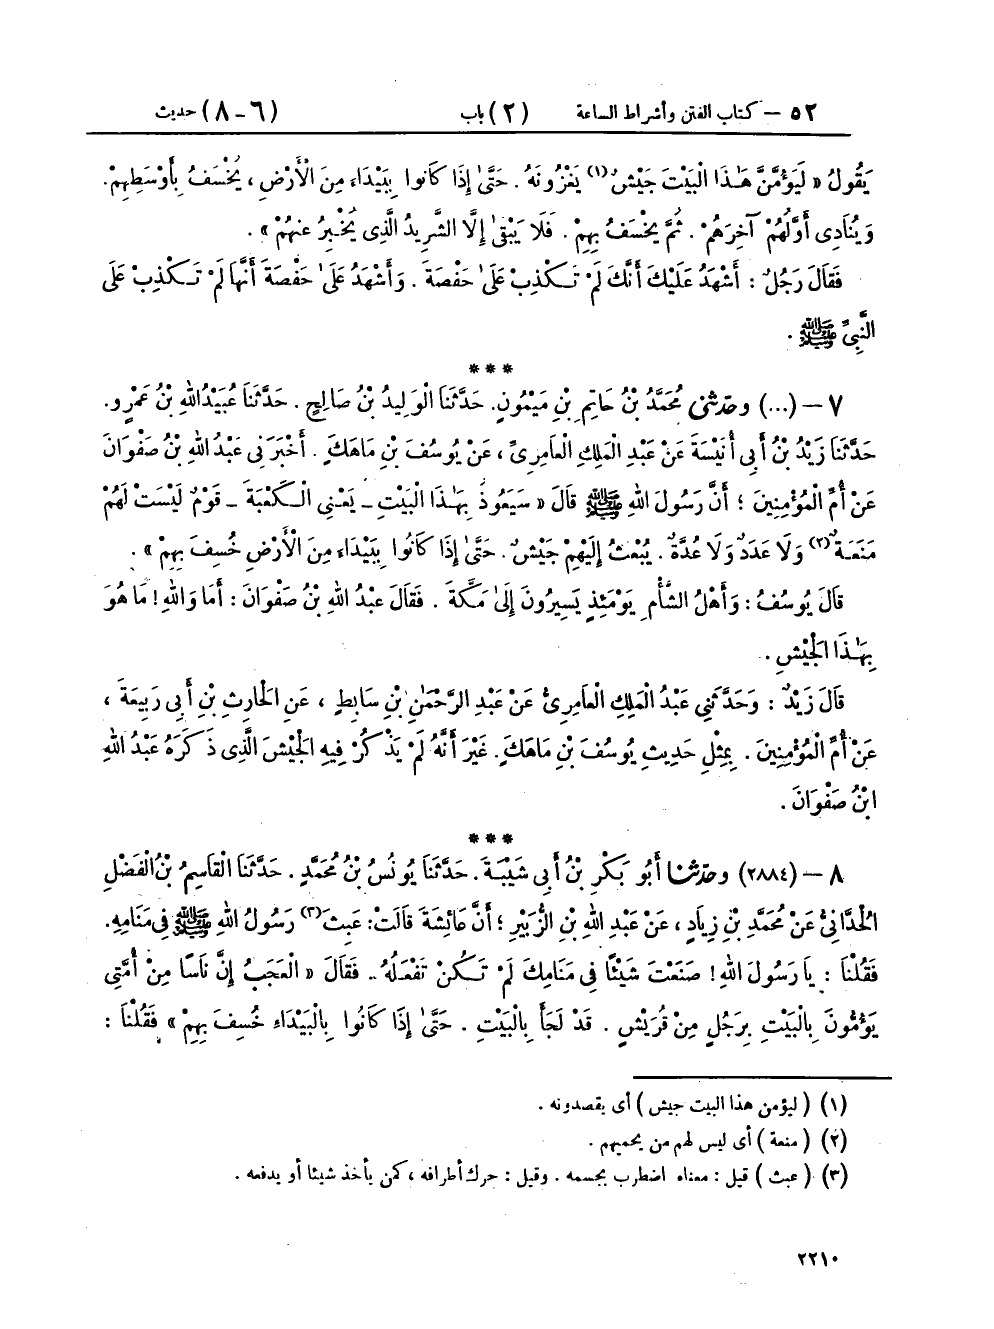 ٥٢ – كتاب الفتن وأشراط الساعة (٢) باب (٦-٨) حديث
يَقُولُ « لَيَؤُمَّنَّ هَٰذَا الْبَيْتَ جَيْشٌ(١) يَغْزُونَهُ . حَتَّىٰ إِذَا كَانُوا بِبَيْدَاءَ مِنَ الْأَرْضِ ، يُخْسَفُ بِأَوْسَطِهِمْ.
وَيُنَادِى أَوَّلُهُمْ آخِرَهُمْ . ثُمَّ يُخْسَفُ بِهِمْ . فَلَا يَبْقَىٰ إِلَّا الشَّرِيدُ الَّذِى يُخْبِرُ عَنْهُمْ » .
فَقَالَ رَجُلٌ : أَشْهَدُ عَلَيْكَ أَنَّكَ لَمْ تَكْذِبْ عَلَىٰ حَفْصَةَ . وَأَشْهَدُ عَلَىٰ حَفْصَةَ أَنَّهَا لَمْ تَكْذِبْ عَلَى
النَّبِىِّ ﷺ .
***
٧ – (...) وحدثنى مُحَمَّدُ بْنُ حَاتِمِ بْنِ مَيْمُونٍ. حَدَّثَنَا الْوَلِيدُ بْنُ صَالِحٍ . حَدَّثَنَا عُبَيْدُ اللهِ بْنُ عَمْرٍو.
حَدَّثَنَا زَيْدُ بْنُ أَبِى أُنَيْسَةَ عَنْ عَبْدِ الْمَلِكِ الْعَامِرِىِّ ، عَنْ يُوسُفَ بْنِ مَاهَكَ . أَخْبَرَنِى عَبْدُ اللهِ بْنُ صَفْوَانَ
عَنْ أُمِّ الْمُؤْمِنِينَ ؛ أَنَّ رَسُولَ اللهِ ﷺ قَالَ « سَيَعُوذُ بِهَٰذَا الْبَيْتِ – يَعْنِى الْكَعْبَةَ – قَوْمٌ لَيْسَتْ لَهُمْ
مَنَعَةٌ(٢) وَلَا عَدَدٌ وَلَا عُدَّةٌ . يُبْعَثُ إِلَيْهِمْ جَيْشٌ. حَتَّىٰ إِذَا كَانُوا بِبَيْدَاءَ مِنَ الْأَرْضِ خُسِفَ بِهِمْ » .
قَالَ يُوسُفُ : وَأَهْلُ الشَّأْمِ يَوْمَئِذٍ يَسِيرُونَ إِلَىٰ مَكَّةَ . فَقَالَ عَبْدُ اللهِ بْنُ صَفْوَانَ : أَمَا وَاللهِ ! مَا هُوَ
بِهَٰذَا الْجَيْشِ .
قَالَ زَيْدٌ : وَحَدَّثَنِى عَبْدُ الْمَلِكِ الْعَامِرِىُّ عَنْ عَبْدِ الرَّحْمَٰنِ بْنِ سَابِطٍ ، عَنِ الْحَارِثِ بْنِ أَبِى رَبِيعَةَ ،
عَنْ أُمِّ الْمُؤْمِنِينَ . بِمِثْلِ حَدِيثِ يُوسُفَ بْنِ مَاهَكَ. غَيْرَ أَنَّهُ لَمْ يَذْكُرْ فِيهِ الْجَيْشَ الَّذِى ذَكَرَهُ عَبْدُ اللهِ
ابْنُ صَفْوَانَ .
***
٨ – (٢٨٨٤) وحدثنا أَبُو بَكْرِ بْنُ أَبِى شَيْبَةَ. حَدَّثَنَا يُونُسُ بْنُ مُحَمَّدٍ . حَدَّثَنَا الْقَاسِمُ بْنُ الْفَضْلِ
الْحُدَّانِىُّ عَنْ مُحَمَّدِ بْنِ زِيَادٍ ، عَنْ عَبْدِ اللهِ بْنِ الزُّبَيْرِ ؛ أَنَّ عَائِشَةَ قَالَتْ: عَبِثَ(٣) رَسُولُ اللهِ ﷺ فِى مَنَامِهِ.
فَقُلْنَا : يَا رَسُولَ اللهِ ! صَنَعْتَ شَيْئًا فِى مَنَامِكَ لَمْ تَكُنْ تَفْعَلُهُ . فَقَالَ « الْعَجَبُ إِنَّ نَاسًا مِنْ أُمَّتِى
يَؤُمُّونَ بِالْبَيْتِ بِرَجُلٍ مِنْ قُرَيْشٍ . قَدْ لَجَأَ بِالْبَيْتِ . حَتَّىٰ إِذَا كَانُوا بِالْبَيْدَاءِ خُسِفَ بِهِمْ » فَقُلْنَا :
(١) ( ليؤمن هذا البيت جيش ) أى يقصدونه .
(٢) ( منعة ) أى ليس لهم من يحميهم .
(٣) ( عبث ) قيل : معناه اضطرب بجسمه . وقيل : حرك أطرافه ، كمن يأخذ شيئا أو يدفعه .
٢٢١٠